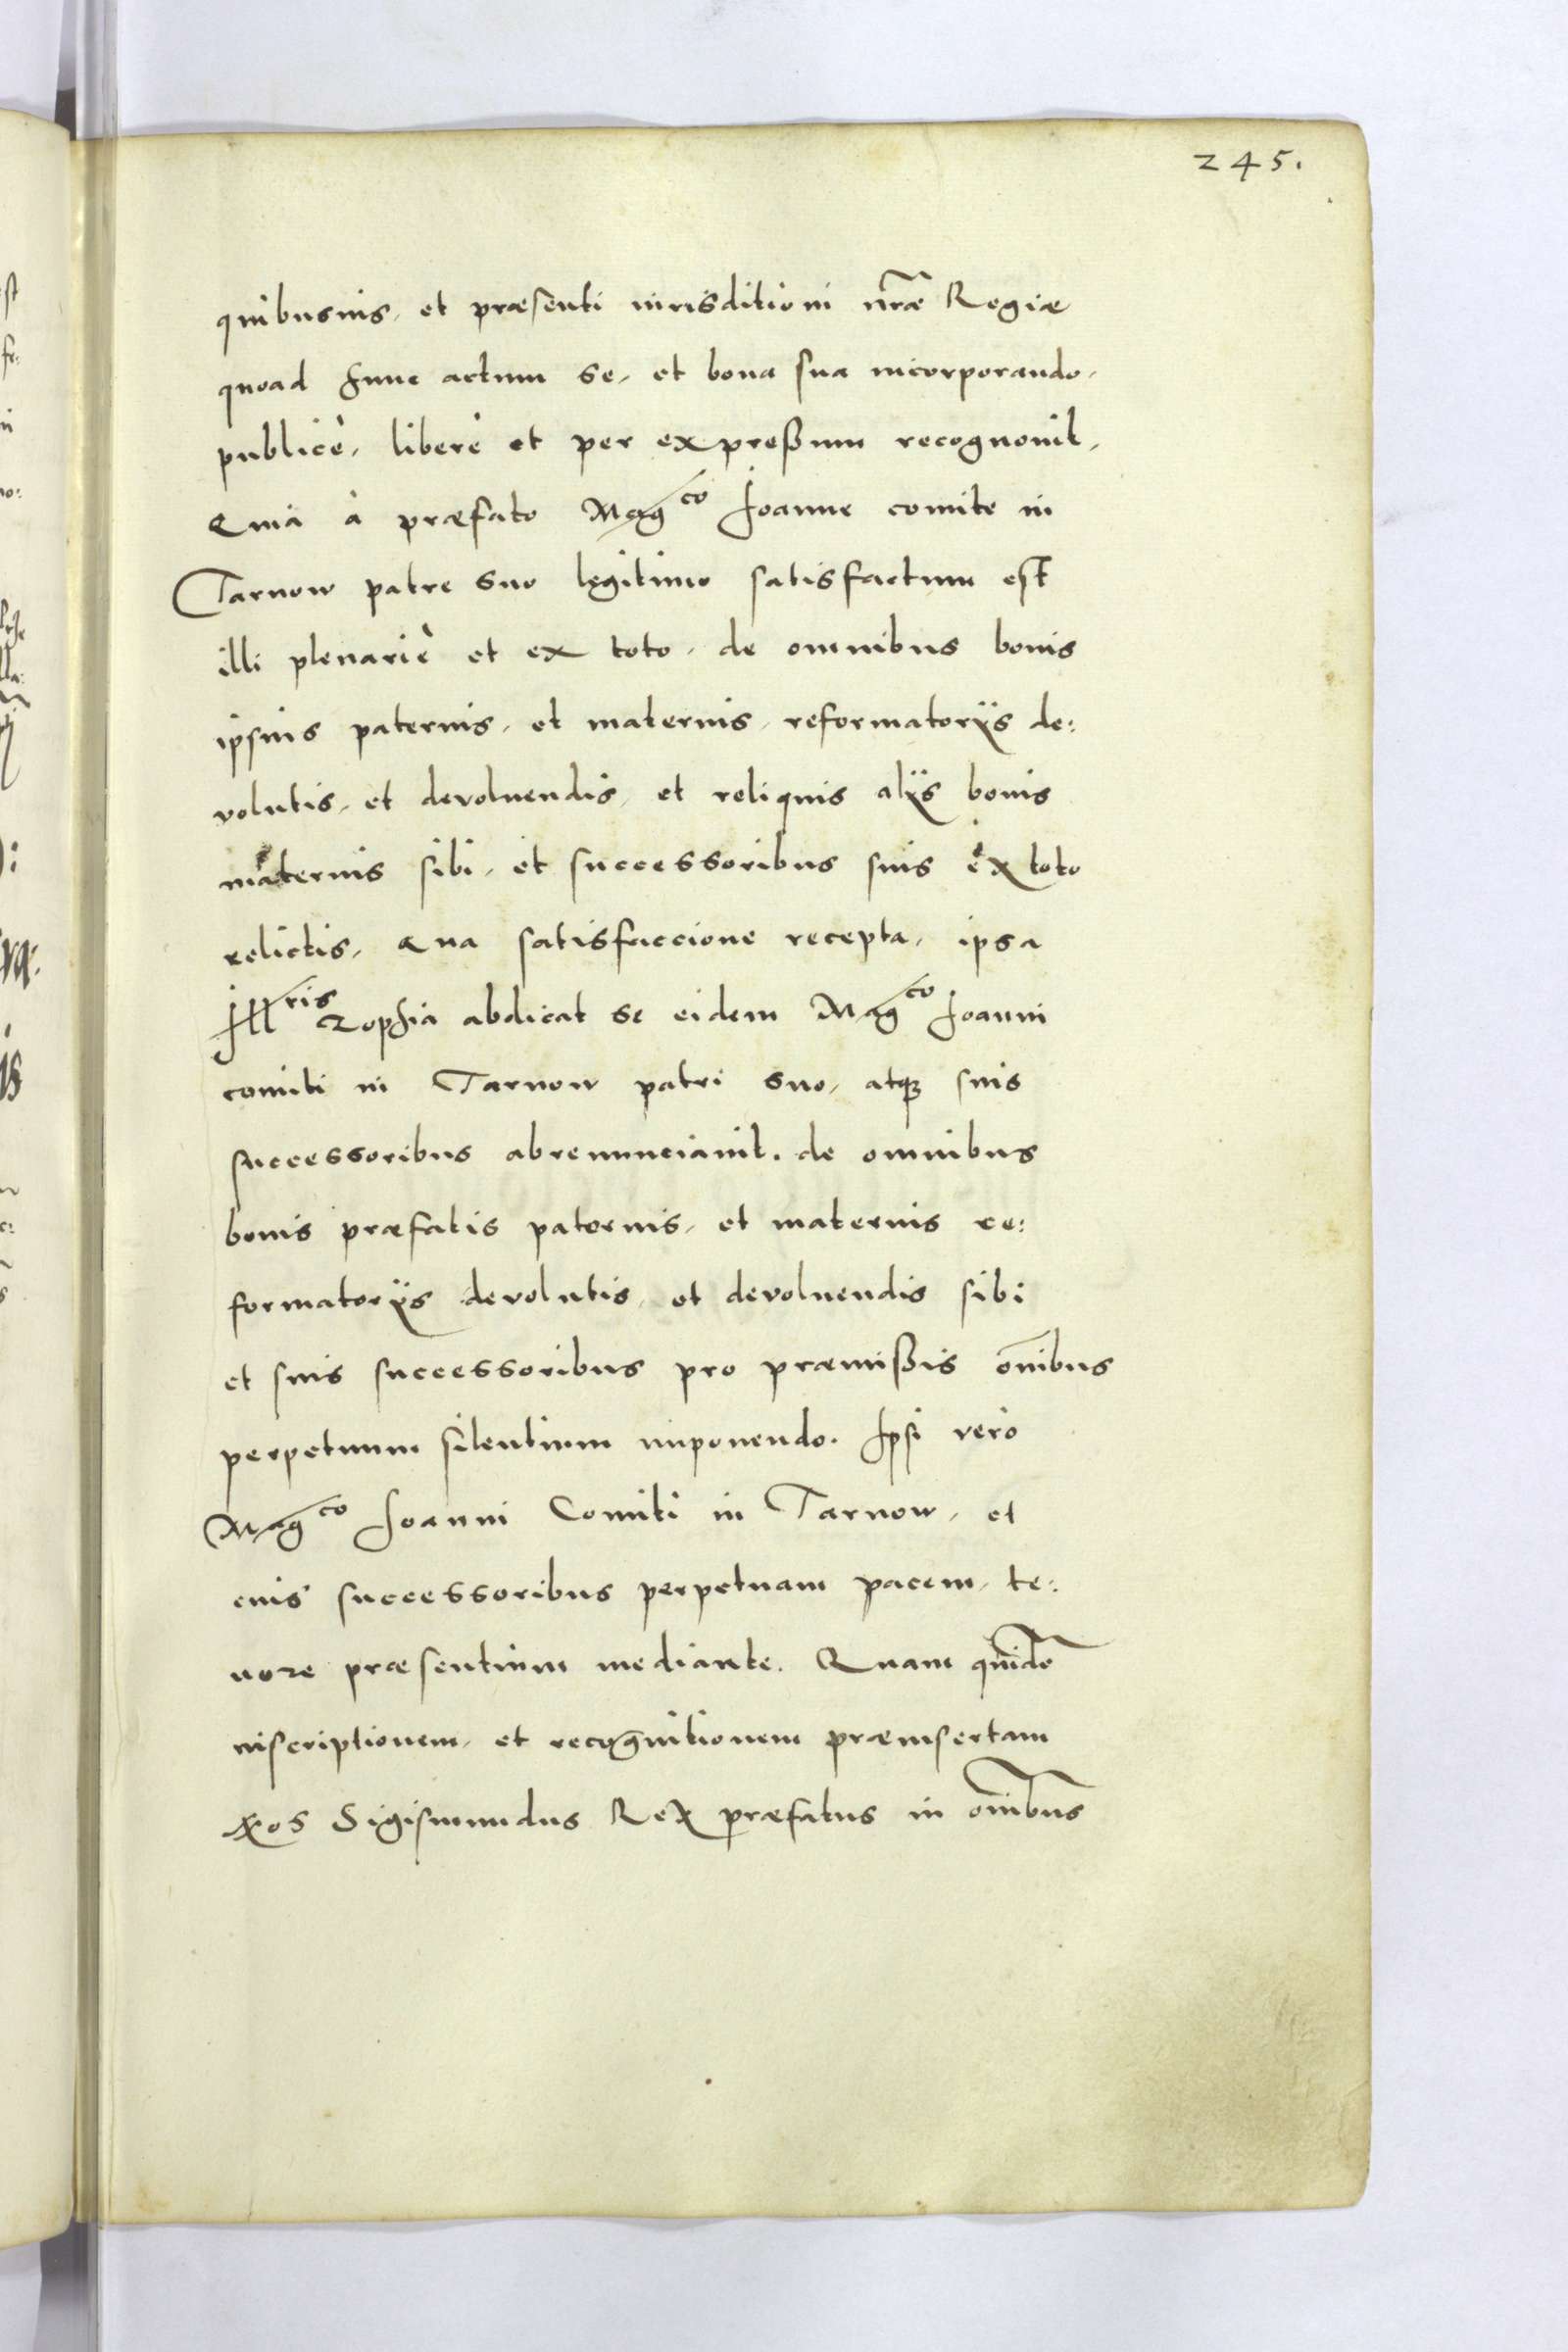 245.
quibusuis, et præsenti iurisditioni nr̃æ Regiæ
quoad hunc actum se, et bona sua incorporando,
publicè, liberè et per expreßum recognouit,
Quia à præfato Mag^co Joanne comite in
Tarnow patre suo legitimo satisfactum est
illi plenariè et ex toto, de omnibus bonis
ipsius paternis, et maternis, reformatorijs de:
volutis, et devoluendis, et reliquis alijs bonis
maternis sibi, et successoribus suis ex toto
relictis, Qua satisfaccione recepta, ipsa
Ill^ris Zophia abdicat se eidem Mag^co Joanni
comiti in Tarnow patri suo, atq; suis
successoribus abrenunciauit. de omnibus
bonis præfatis paternis, et maternis re:
formatorijs devolutis, et devoluendis sibi
et suis successoribus pro præmißis om̃ibus
perpetuum silentium imponendo. Ipsi vero
Mag^co Joanni Comiti in Tarnow, et
euis successoribus perpetuam pacem, te:
nore præsentium mediante. Quam quidẽ
inscriptionem, et recognitionem præinsertam
Nos Sigismundus Rex præfatus in om̃ibus